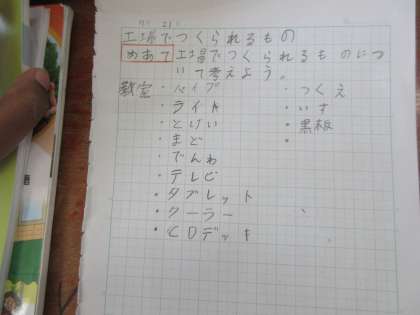 工場でつくられるもの
めあて 工場でつくられるものにつ
いて考えよう。
教室・パイプ
・ライト
・とけい
・まど
・でんわ
・テレビ
・タブレット
・クーラー
・CDデッキ
・つくえ
・いす
・黒板
・